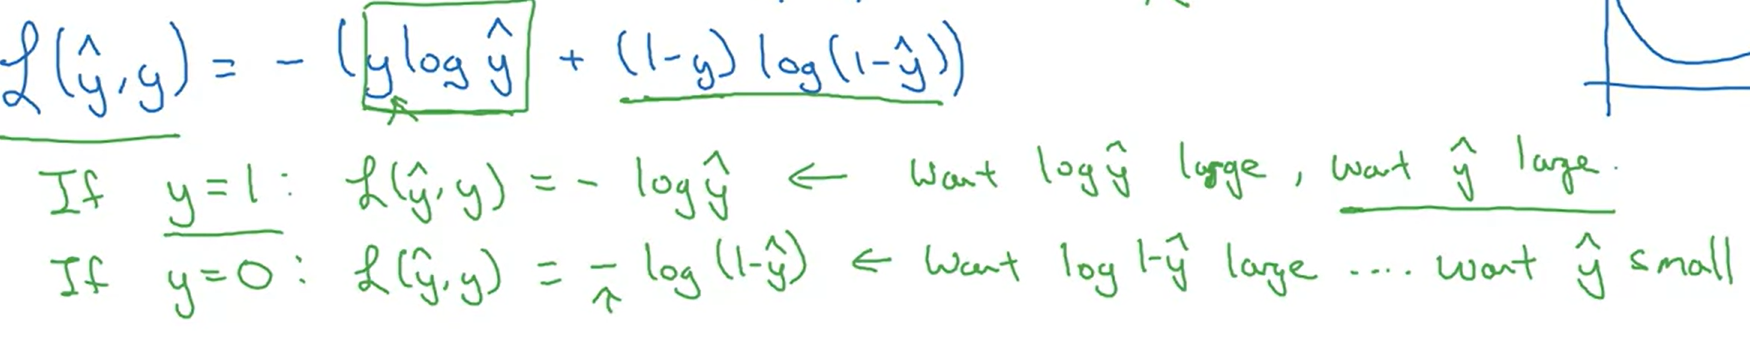 ℒ(ŷ, y) = - (y log ŷ + (1-y) log(1-ŷ))
If y=1: ℒ(ŷ, y) = - log ŷ ← want log ŷ large, want ŷ large.
If y=0: ℒ(ŷ, y) = - log (1-ŷ) ← want log 1-ŷ large .... want ŷ small